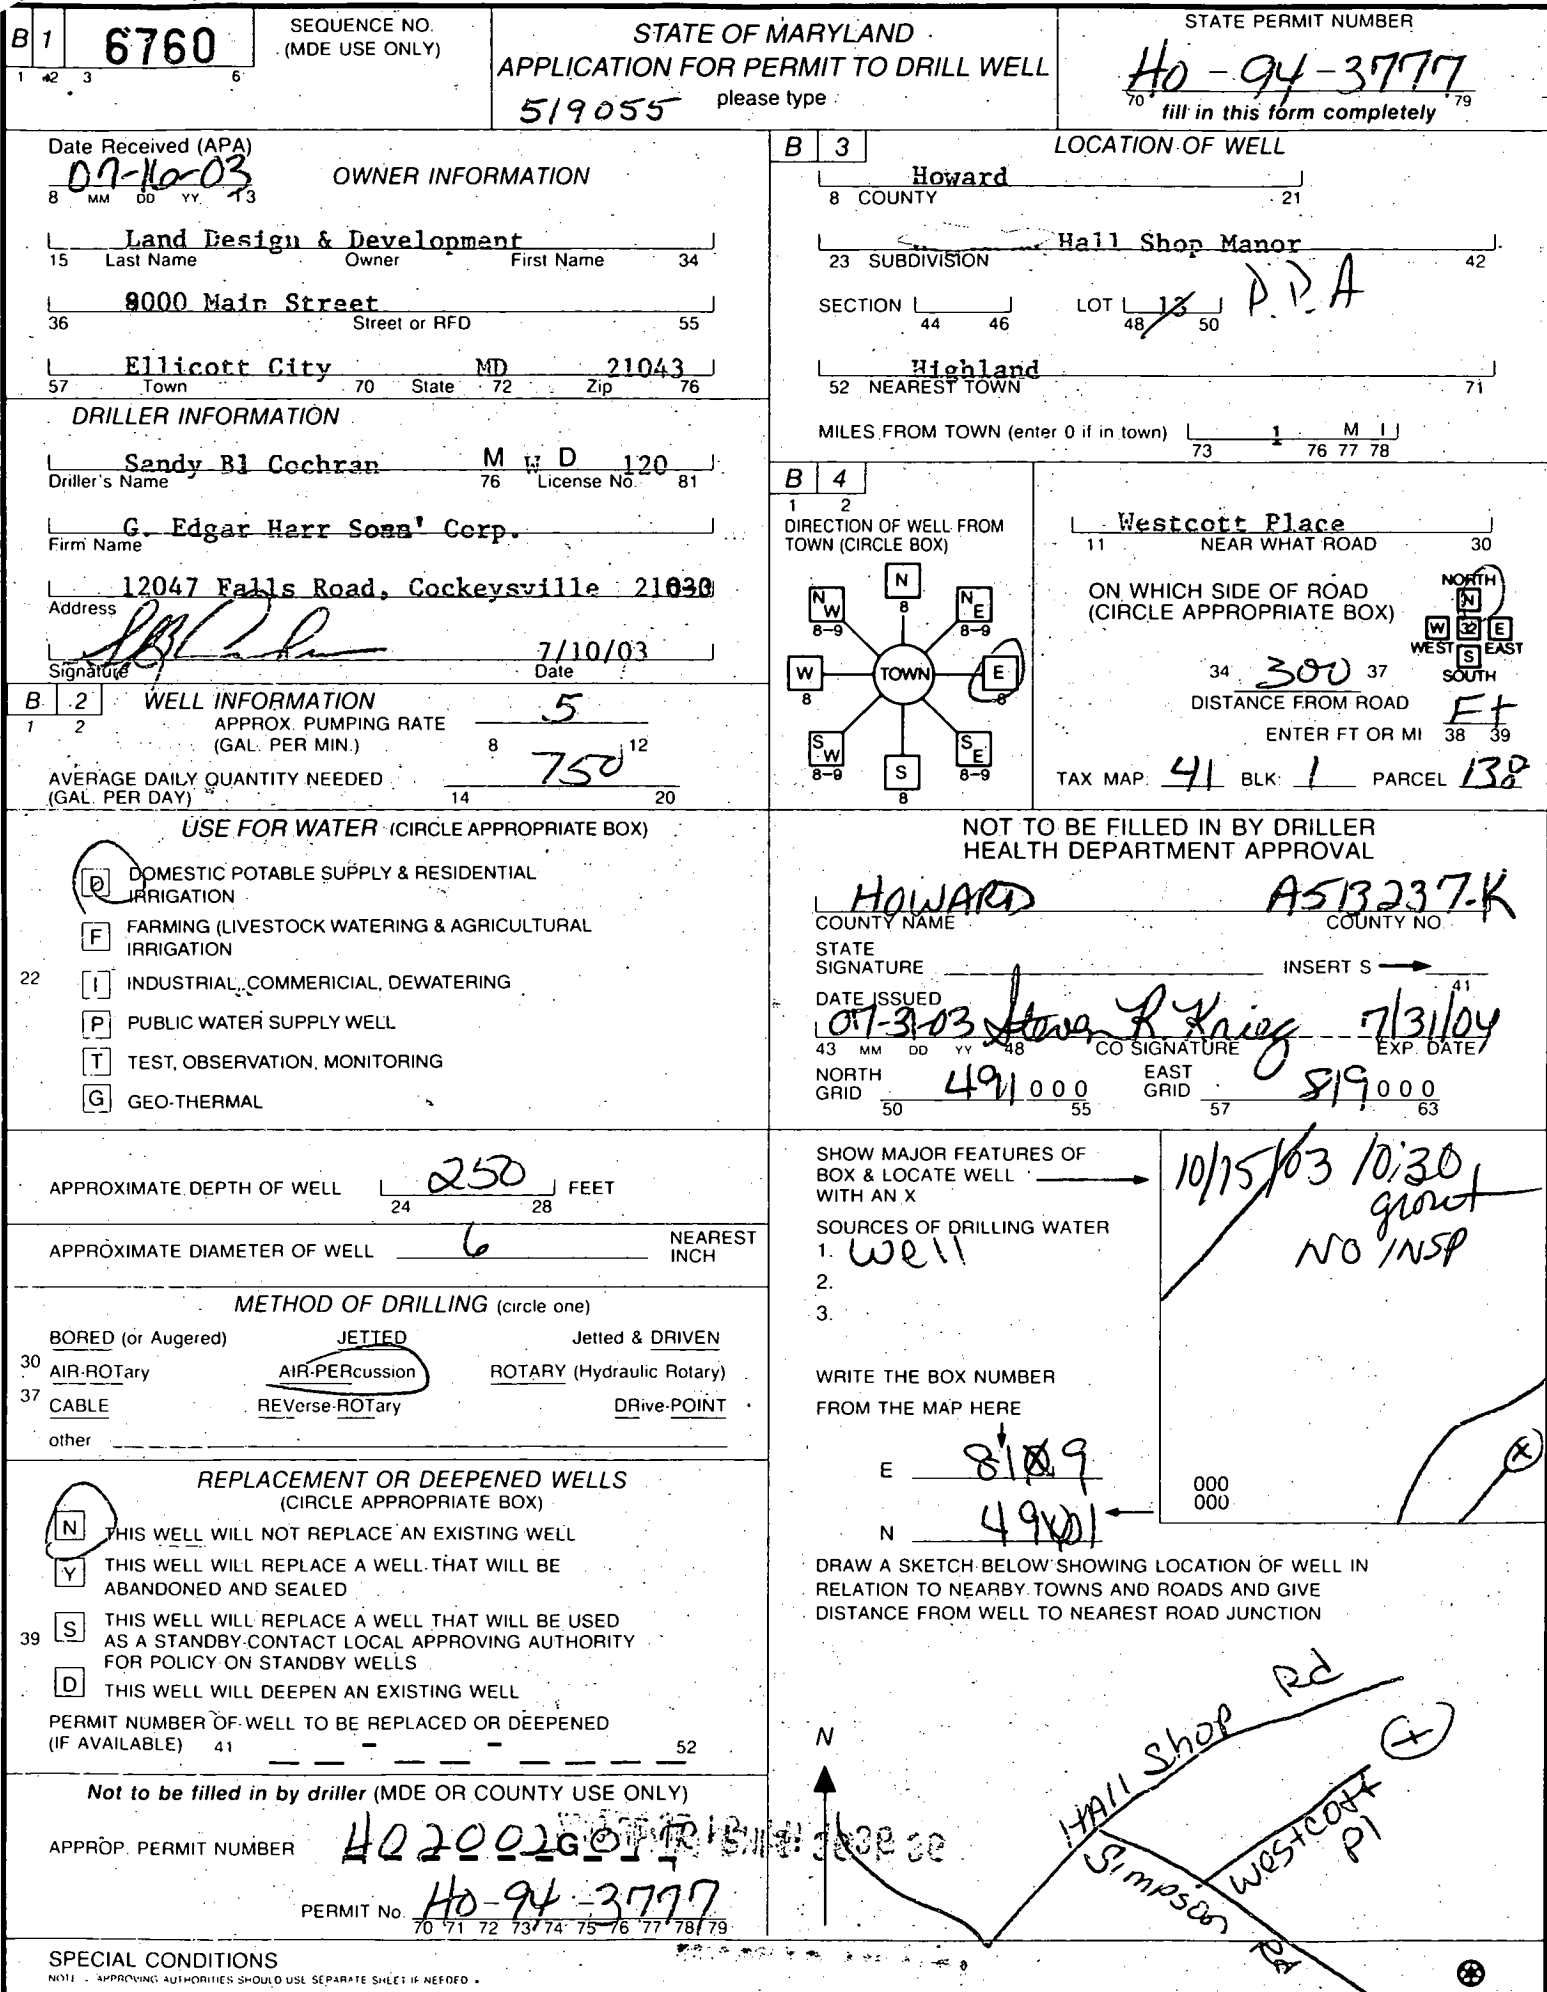 B 1 6760 SEQUENCE NO. (MDE USE ONLY)
1 2 3 6
STATE OF MARYLAND
APPLICATION FOR PERMIT TO DRILL WELL
519055 please type
STATE PERMIT NUMBER
HO-94-3777
70 79
fill in this form completely
Date Received (APA)
07-16-03
8 MM DD YY 13
OWNER INFORMATION
Land Design & Development
15 Last Name Owner First Name 34
8000 Main Street
36 Street or RFD 55
Ellicott City MD 21043
57 Town 70 State 72 Zip 76
DRILLER INFORMATION
Sandy Bl Cochran M W D 120
Driller's Name 76 License No. 81
G. Edgar Harr Sons' Corp.
Firm Name
12047 Falls Road, Cockeysville 21030
Address
7/10/03
Signature Date
B 2 WELL INFORMATION
1 2
APPROX. PUMPING RATE
(GAL. PER MIN.) 5
8 12
AVERAGE DAILY QUANTITY NEEDED
(GAL. PER DAY) 750
14 20
USE FOR WATER (CIRCLE APPROPRIATE BOX)
D DOMESTIC POTABLE SUPPLY & RESIDENTIAL
IRRIGATION
F FARMING (LIVESTOCK WATERING & AGRICULTURAL
IRRIGATION
22 I INDUSTRIAL, COMMERICIAL, DEWATERING
P PUBLIC WATER SUPPLY WELL
T TEST, OBSERVATION, MONITORING
G GEO-THERMAL
APPROXIMATE DEPTH OF WELL 250 FEET
24 28
APPROXIMATE DIAMETER OF WELL 6 NEAREST
INCH
METHOD OF DRILLING (circle one)
BORED (or Augered) JETTED Jetted & DRIVEN
30 AIR-ROTary AIR-PERcussion ROTARY (Hydraulic Rotary)
37 CABLE REVerse-ROTary DRive-POINT
other
REPLACEMENT OR DEEPENED WELLS
(CIRCLE APPROPRIATE BOX)
N THIS WELL WILL NOT REPLACE AN EXISTING WELL
Y THIS WELL WILL REPLACE A WELL THAT WILL BE
ABANDONED AND SEALED
39 S THIS WELL WILL REPLACE A WELL THAT WILL BE USED
AS A STANDBY-CONTACT LOCAL APPROVING AUTHORITY
FOR POLICY ON STANDBY WELLS
D THIS WELL WILL DEEPEN AN EXISTING WELL
PERMIT NUMBER OF WELL TO BE REPLACED OR DEEPENED
(IF AVAILABLE) 41 - - 52
Not to be filled in by driller (MDE OR COUNTY USE ONLY)
APPROP. PERMIT NUMBER HO2002G
PERMIT No. HO-94-3777
70 71 72 73 74 75 76 77 78 79
SPECIAL CONDITIONS
NOTE - APPROVING AUTHORITIES SHOULD USE SEPARATE SHEET IF NEEDED
B 3 LOCATION OF WELL
Howard
8 COUNTY 21
Hall Shop Manor
23 SUBDIVISION 42
SECTION LOT 13 P.P.A
44 46 48 50
Highland
52 NEAREST TOWN 71
MILES FROM TOWN (enter 0 if in town) 1 M I
73 76 77 78
B 4
1 2
DIRECTION OF WELL FROM
TOWN (CIRCLE BOX)
N
8
NW
8-9
NE
8-9
W
8
TOWN
E
8
SW
8-9
S
8
SE
8-9
Westcott Place
11 NEAR WHAT ROAD 30
ON WHICH SIDE OF ROAD
(CIRCLE APPROPRIATE BOX)
NORTH
N
W 32 E
WEST EAST
S
SOUTH
34 300 37
DISTANCE FROM ROAD
Ft
ENTER FT OR MI 38 39
TAX MAP: 41 BLK: 1 PARCEL 138
NOT TO BE FILLED IN BY DRILLER
HEALTH DEPARTMENT APPROVAL
HOWARD A513237-K
COUNTY NAME COUNTY NO.
STATE
SIGNATURE INSERT S
41
DATE ISSUED
07-31-03 Steven R. Krieg 7/31/04
43 MM DD YY 48 CO SIGNATURE EXP. DATE
NORTH
GRID 491 000
50 55
EAST
GRID 819 000
57 63
SHOW MAJOR FEATURES OF
BOX & LOCATE WELL
WITH AN X
SOURCES OF DRILLING WATER
1. Well
2.
3.
10/15/03 10:30
grout
NO INSP
000
000
WRITE THE BOX NUMBER
FROM THE MAP HERE
E 819
N 491
DRAW A SKETCH BELOW SHOWING LOCATION OF WELL IN
RELATION TO NEARBY TOWNS AND ROADS AND GIVE
DISTANCE FROM WELL TO NEAREST ROAD JUNCTION
N
Hall Shop Rd
Westcott Pl
Simpson Rd